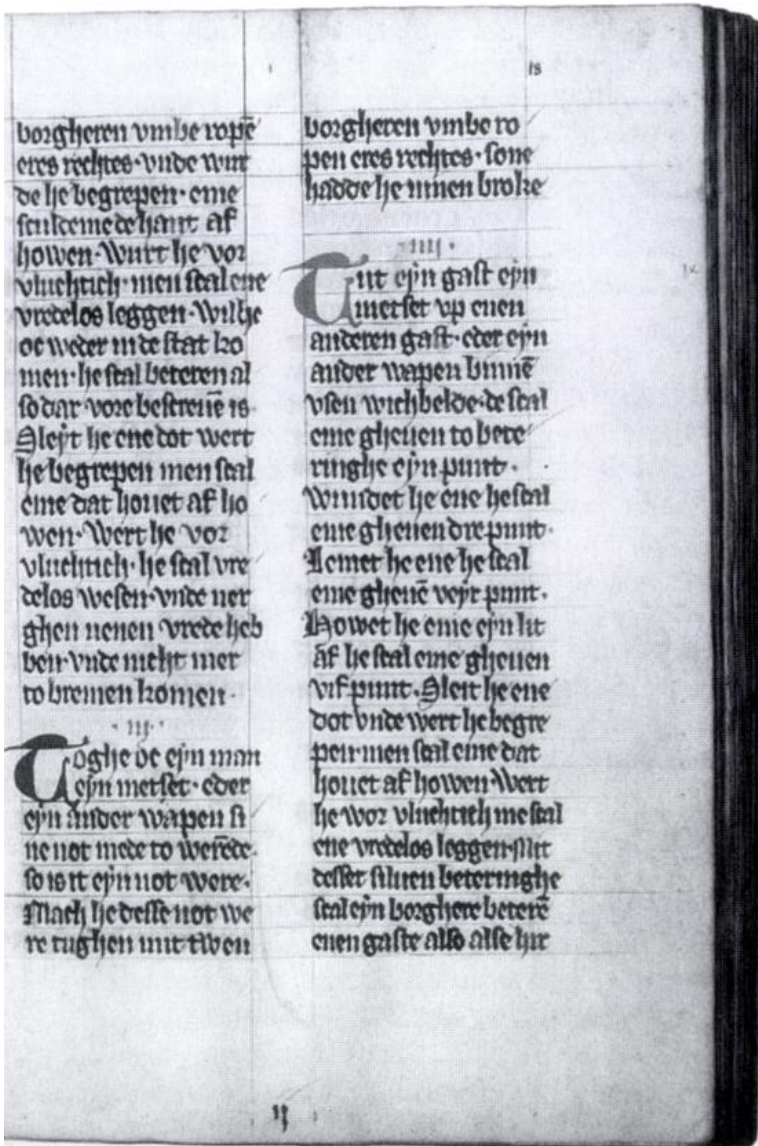 18
borgheren vmbe ropē
eres rechtes · vnde wur
de he begrepen · eme
scul deme de hant af
howen · Wurt he vor
vluchtich · men scal ene
vredelos leggen · Wil he
oc weder in de stat ko
men · he scal beteren al
so dar vore bescreuē is ·
Sleyt he ene dot wert
he begrepen men scal
eme dat houet af ho
wen · Wert he vor
vluchtich · he scal vre
delos wesen · vnde ner
ghen nenen vrede heb
ben · vnde nicht mer
to bremen komen ·
· iij ·
Toghe oc eyn man
eyn metset · eder
eyn ander wapen si
ne not mede to werēde ·
so is it eyn not were ·
Mach he desse not we
re tughen mit twen
borgheren vmbe ro
pen eres rechtes · sone
hadde he ninen broke
· iiij ·
Tut eyn gast eyn
metset vp enen
anderen gast · eder eyn
ander wapen binnē
vsen wichbelde · de scal
eme gheuen to bete
ringhe eyn punt ·
Wundet he ene he scal
eme gheuen dre punt ·
Lemet he ene he scal
eme gheuē veyr punt ·
Howet he eme eyn lit
af he scal eme gheuen
vif punt · Sleit he ene
dot vnde wert he begre
pen · men scal eme dat
houet af howen · Wert
he vor vluchtich mē scal
ene vredelos leggen · Mit
desser siluen beteringhe
scal eyn borghere beterē
enen gaste also alse hir
ij